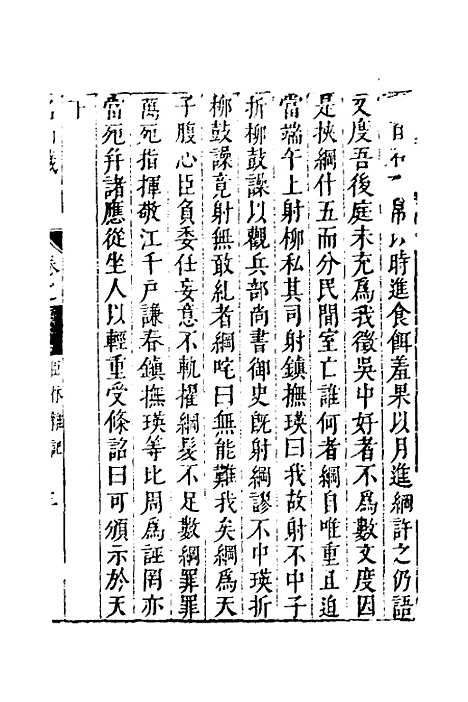 帛以時進食餌羞果以月進綱許之仍語
文度吾後庭未充為我徵吳中好者不為數文度因
是挾綱什五而分民間室亡誰何者綱自唯重且迫
當端午上射柳私其司射鎮撫瑛曰我故射不中子
折柳鼓譟以觀兵部尚書御史既射綱謬不中瑛折
柳鼓譟竟射無敢糺者綱咤曰無能難我矣綱為天
子腹心臣負委任妄意不軌擢綱髮不足數綱罪罪
萬死指揮敬江千戶謙春鎮撫瑛等比周為誣罔亦
當死幷諸應從坐人以輕重受條詔曰可頒示於天
下
卷之